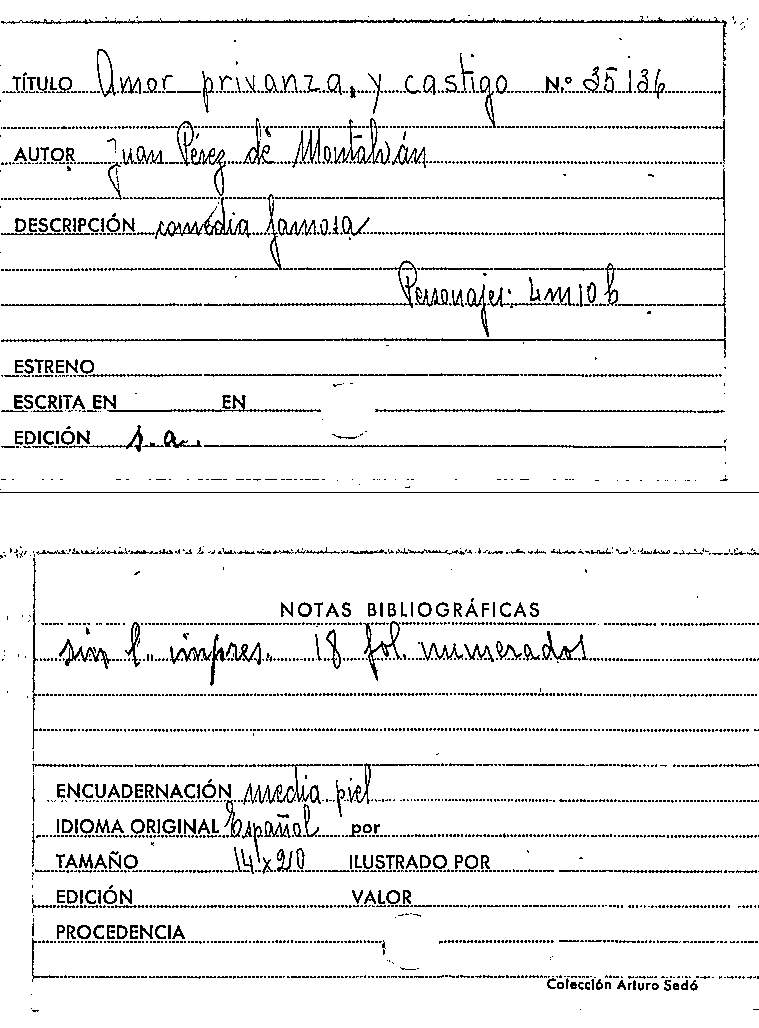 TÍTULO Amor privanza, y castigo N.º 35136
AUTOR Juan Pérez de Montalván
DESCRIPCIÓN comédia famosa
Personajes: 4m 10 h
ESTRENO
ESCRITA EN EN
EDICIÓN s.a.
NOTAS BIBLIOGRÁFICAS
sin l. impres. 18 fol. numerados
ENCUADERNACIÓN media piel
IDIOMA ORIGINAL Español por
TAMAÑO 14 x 20 ILUSTRADO POR
EDICIÓN VALOR
PROCEDENCIA
Colección Arturo Sedó